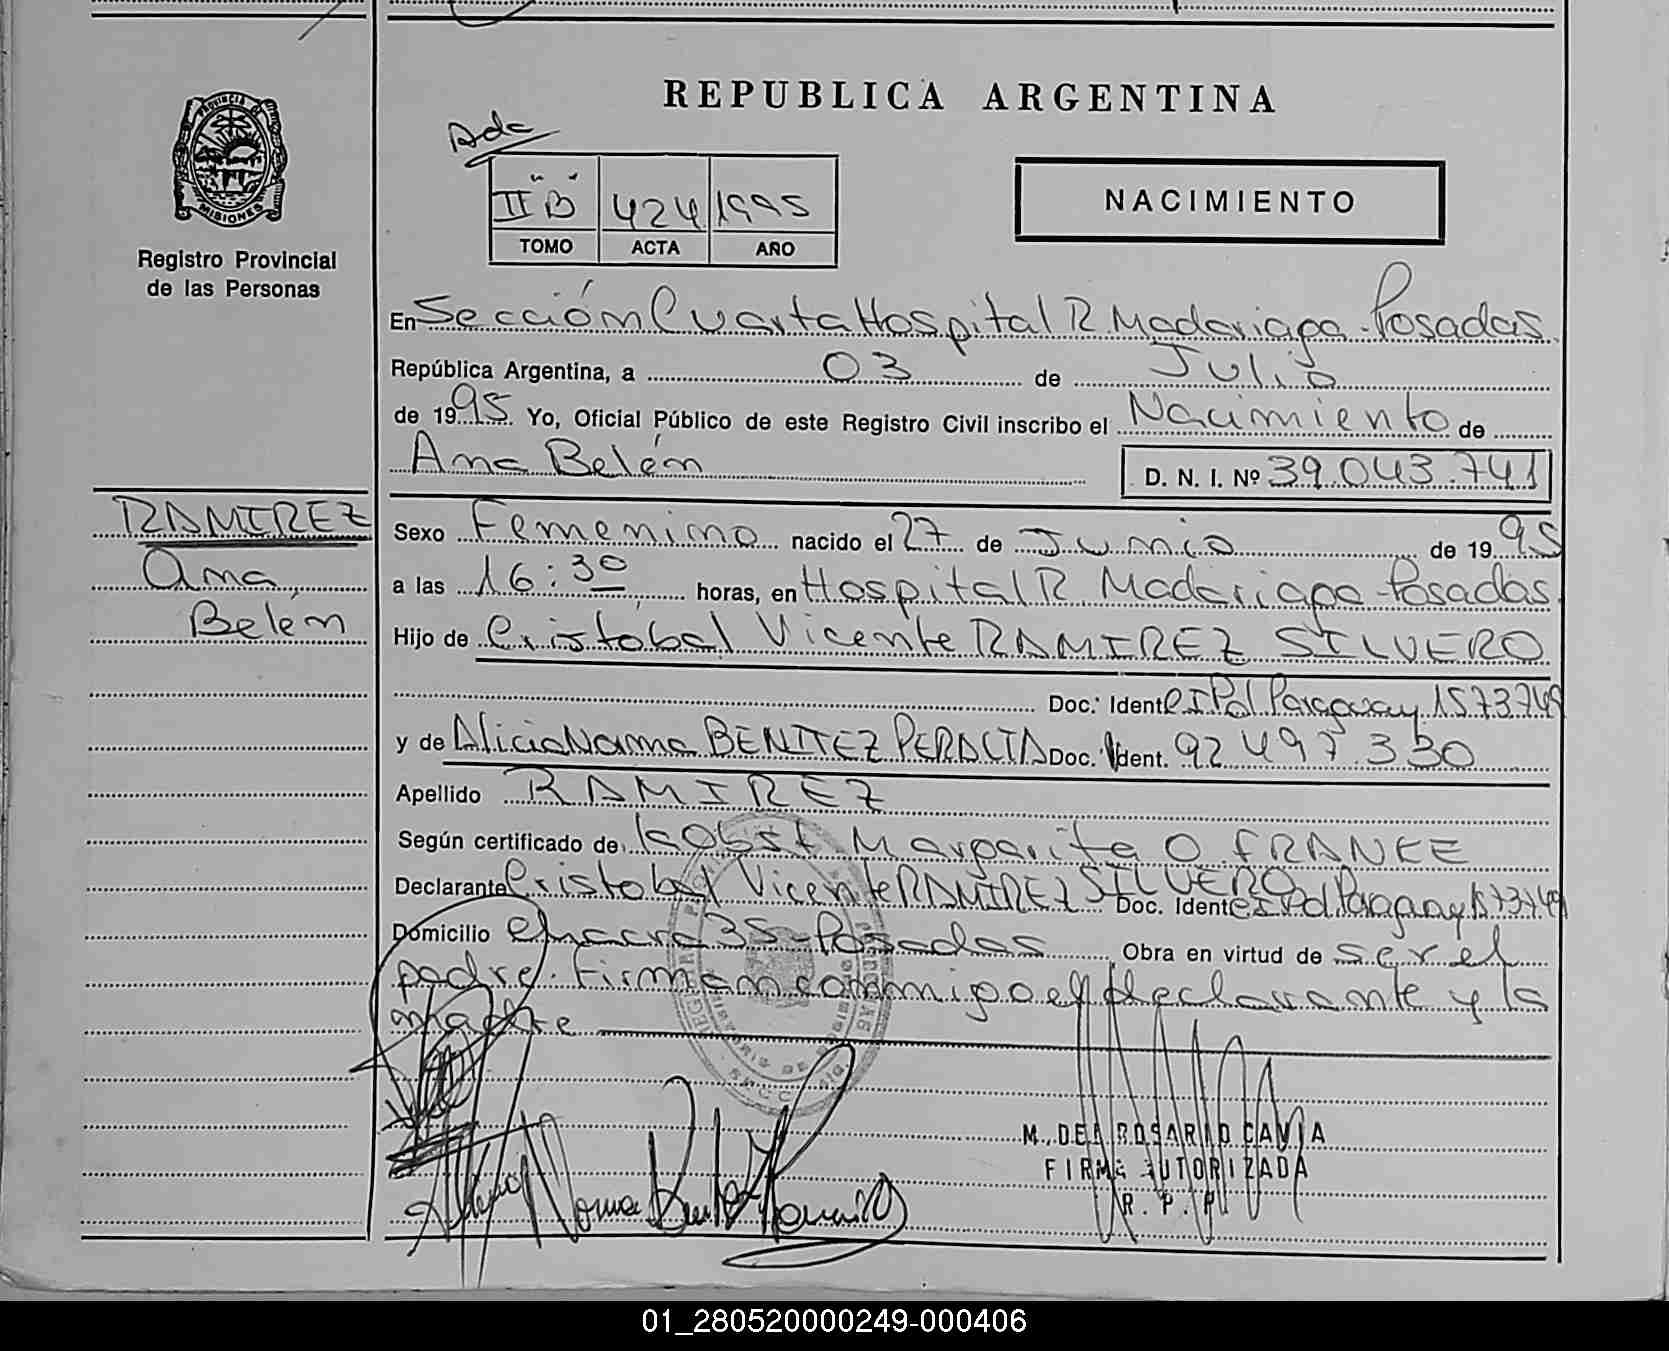 REPUBLICA ARGENTINA
PROVINCIA DE MISIONES
Registro Provincial
de las Personas
Adc
II "B" 424 1995
TOMO ACTA AÑO
NACIMIENTO
En Sección Cuarta Hospital R Madariaga - Posadas
República Argentina, a 03 de Julio
de 1995 Yo, Oficial Público de este Registro Civil inscribo el Nacimiento de
Ana Belén D. N. I. Nº 39.043.741
RAMIREZ
Ana
Belén
Sexo Femenino nacido el 27 de Junio de 1995
a las 16:30 horas, en Hospital R. Madariaga - Posadas
Hijo de Cristóbal Vicente RAMIREZ SILVERO
Doc. Ident. C I Pol Paraguay 1573749
y de Alicia Norma BENITEZ PERALTA Doc. Ident. 92 497 330
Apellido RAMIREZ
Según certificado de Obst Margarita O FRANKE
Declarante Cristobal Vicente RAMIREZ SILVERO Doc. Ident. C I Pol Paraguay 1573749
Domicilio Chacra 35 - Posadas Obra en virtud de ser el
padre. Firman conmigo el declarante y la
madre
M. DEL ROSARIO CAVIA
FIRMA AUTORIZADA
R. P. P.
01_280520000249-000406